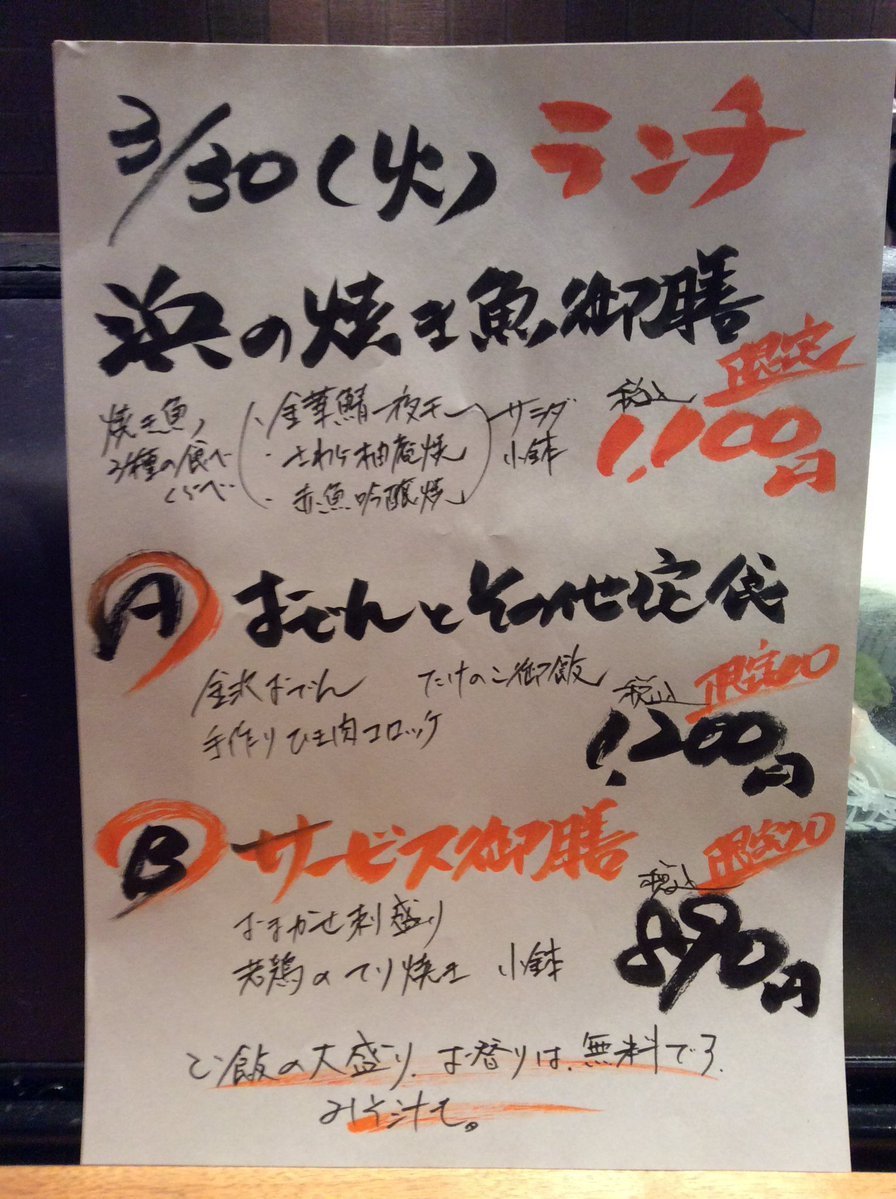 3/30(火) ランチ
浜の焼き魚御膳
限定
焼き魚
3種の食べ
くらべ
・金華鯖一夜干
・さわら柚庵焼
・赤魚吟醸焼
サラダ
小鉢
税込
1,100円
A おでんとその他定食
金沢おでん たけのこ御飯
手作りひき肉コロッケ
税込 限定20
1,200円
B サービス御膳
おまかせ刺盛り
若鶏のてり焼き 小鉢
税込 限定20
890円
ご飯の大盛り、お替りは、無料です。
みそ汁も。